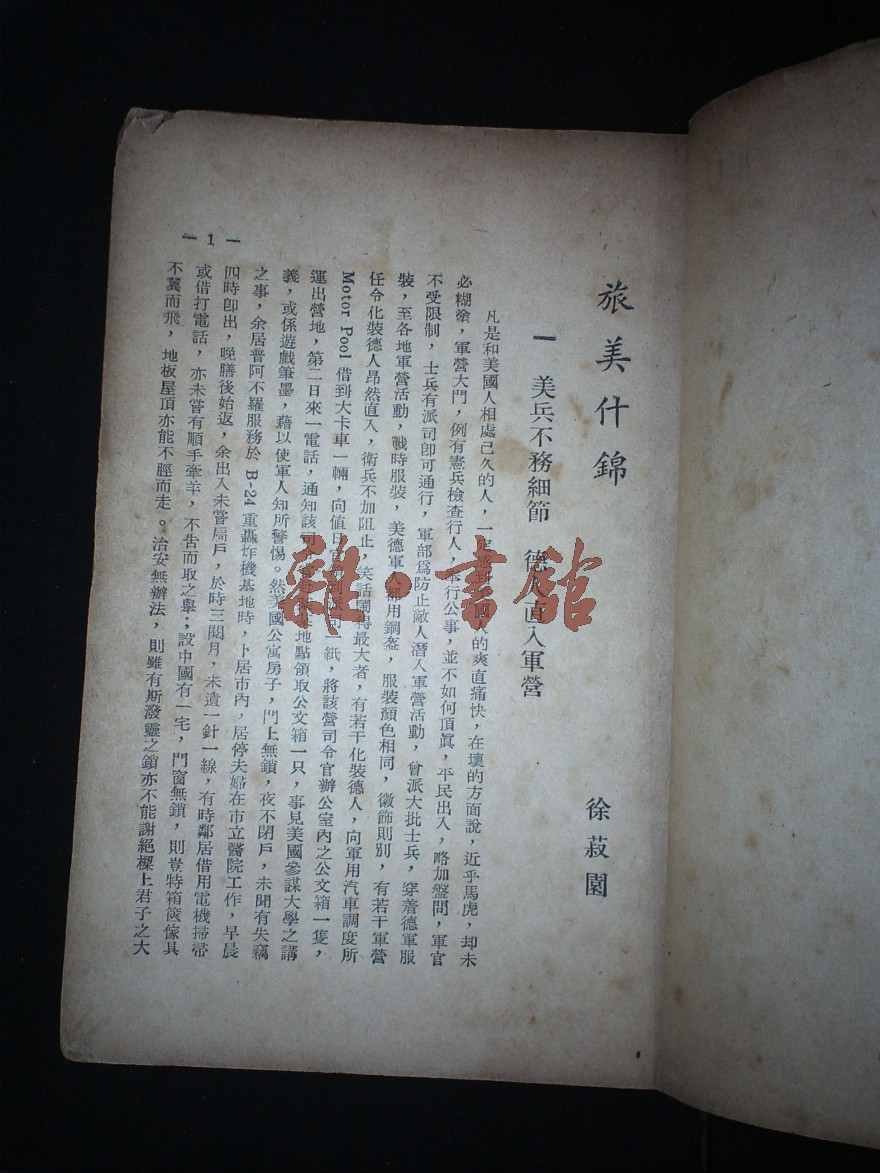 旅美什錦
徐菽園
一 美兵不務細節 德人直入軍營
凡是和美國人相處已久的人，一定感到美國人的爽直痛快，在壞的方面說，近乎馬虎，却未
必糊塗，軍營大門，例有憲兵檢查行人，奉行公事，並不如何頂眞，平民出入，略加盤問，軍官
不受限制，士兵有派司卽可通行，軍部爲防止敵人潛入軍營活動，曾派大批士兵，穿着德軍服
裝，至各地軍營活動，戰時服裝，美德軍人都用鋼盔，服裝顏色相同，徽飾則別，有若干軍營
任令化裝德人昂然直入，衛兵不加阻止，笑話鬧得最大者，有若干化裝德人，向軍用汽車調度所
Motor Pool 借到大卡車一輛，向値日官 一紙，將該營司令官辦公室內之公文箱一隻，
運出營地，第二日來一電話，通知該司 地點領取公文箱一只，事見美國參謀大學之講
義，或係遊戲筆墨，藉以使軍人知所警惕。然美國公寓房子，門上無鎖，夜不閉戶，未聞有失竊
之事，余居普阿不羅服務於 B-24 重轟炸機基地時，卜居市內，居停夫婦在市立醫院工作，早晨
四時卽出，晚膳後始返，余出入未嘗扃戶，於時三閱月，未遺一針一線，有時鄰居借用電機掃帚
或借打電話，亦未嘗有順手牽羊，不告而取之舉；設中國有一宅，門窗無鎖，則豈特箱篋傢具
不翼而飛，地板屋頂亦能不脛而走。治安無辦法，則雖有斯潑靈之鎖亦不能謝絕樑上君子之大
— 1 —
雜·書館